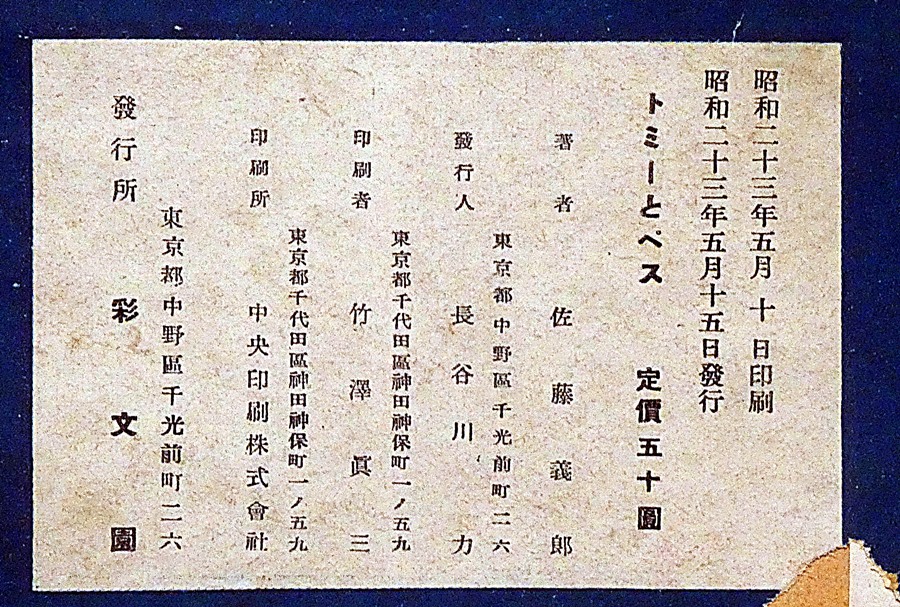 昭和二十三年五月 十 日印刷
昭和二十三年五月十五日發行
トミーとペス 定價五十圓
著者 佐藤義郎
東京都中野區千光前町二六
發行人 長谷川力
東京都千代田區神田神保町一ノ五九
印刷者 竹澤眞三
東京都千代田區神田神保町一ノ五九
印刷所 中央印刷株式會社
東京都中野區千光前町二六
發行所 彩文園